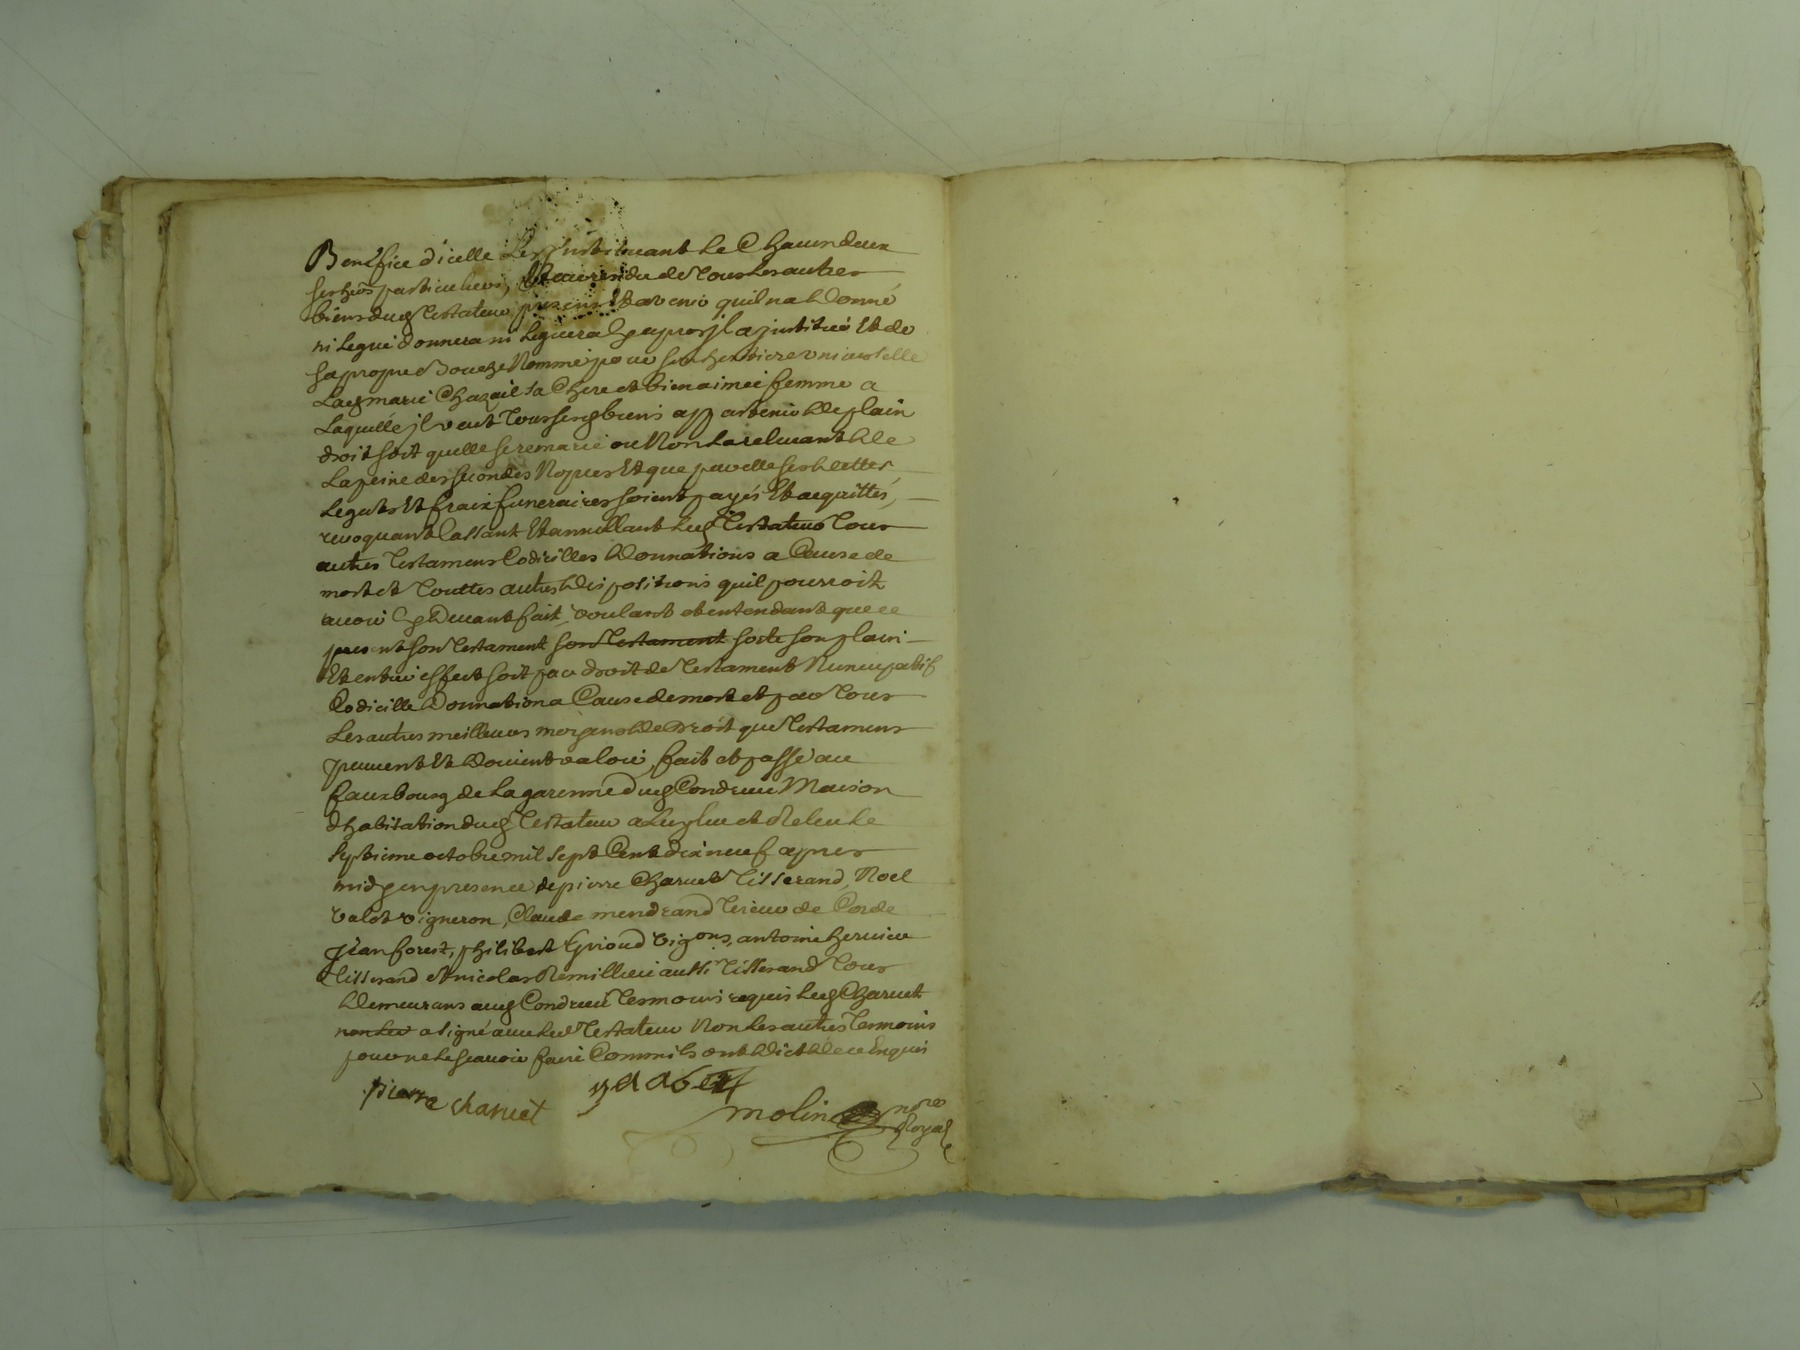 Benefice d'icelle Les Instituant Le Chacun deux
ses heõs particuliers, Et au residu de Tous Les autres
biens dud Testateur presens Et avenir quil na donné
ni Legué donnera ni Leguera Cy apres jl a jnstitué Et de
sa propre bouche Nommé pour son heritiere universelle
Lad marie Chazail sa Chere et bien aimeé femme a
Laquelle jl veut Tous sesd biens appartenir de plain
droit soit quelle se remarie ou Non La relevant de
La peine des secondes Nopces Et que par elle ses dettes
Legats Et fraix funeraires soient payés Et acquittés,
revoquant Cassant Et annullant Led Testateur Tous
autres Testamens Codicilles donnations a Cause de
mort et Touttes autres dispositions quil pourroit
avoir Cy devant fait, voulant et entendant que ce
present son Testament son Testament sorte son plain
Et entier effect soit par droit de Testament Nuncupatif
Codicille donnation a Cause de mort et par Tous
Les autres meilleurs moyens de Droit que Testamens
peuvent Et doivent valoir, fait et passé au
fauxbourg de La garenne dud Condrieu Maison
d'habitation dud Testateur a Luy lu et Releu Le
septieme octobre mil sept Cent dix neuf apres
midy en presence de pierre Charvet Tisserand, Noel
valot vigneron, Claude mendrand Tireur de Corde
jean forest, philibert Griond vigons, antoine hervieu
Tisserand et nicolas Remillieu aussi Tisserand Tous
demeurans aud Condrieu Tesmoins requis Led Charvet
non Les a signé avec Led Testateur Non Les autres Tesmoins
pour ne Le sçavoir faire Comm ils ont dict de ce Enquis
pierre charvet
molin
no.re
Royal